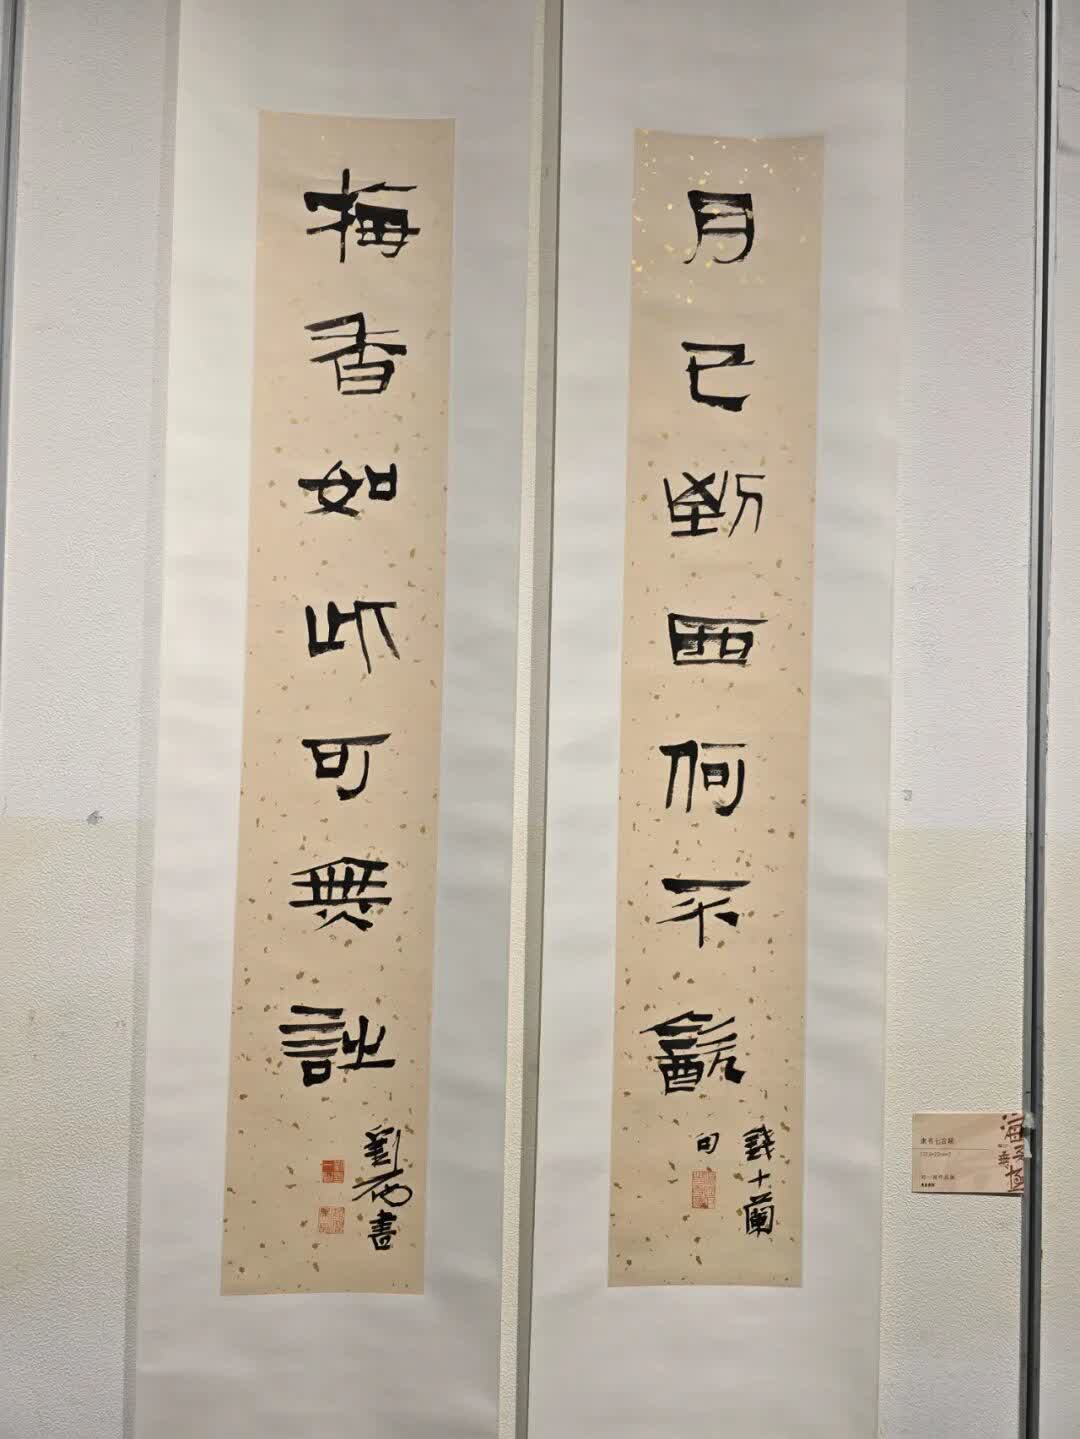 月已到西何不飲
錢十蘭
句
梅香如此可無詩
劉
書
隶书七言联